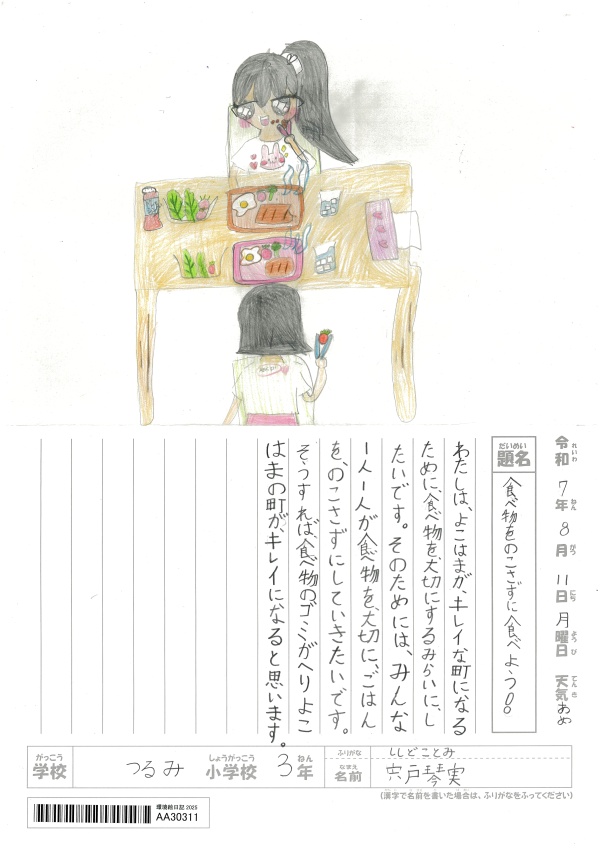 令和7年8月11日月曜日 天気あめ
れいわ ねん がつ にち ようび てんき
だいめい
題名
食べ物をのこさずに食べよう!!。
わたしは、よこはまが、キレイな町になる
ために、食べ物を、大切にするみらいに、し
たいです。そのためには、みんな
一人一人が食べ物を、大切に、ごはん
を、のこさずにしていきたいです。
そうすれば、食べ物の、ゴミがへりよこ
はまの町が、キレイになると思います。
がっこう しょうがっこう ねん
学校 つるみ 小学校 3年
ふりがな ししどことみ
なまえ
名前 宍戸琴実
(漢字で名前を書いた場合は、ふりがなをふってください)
環境絵日記2025
AA30311